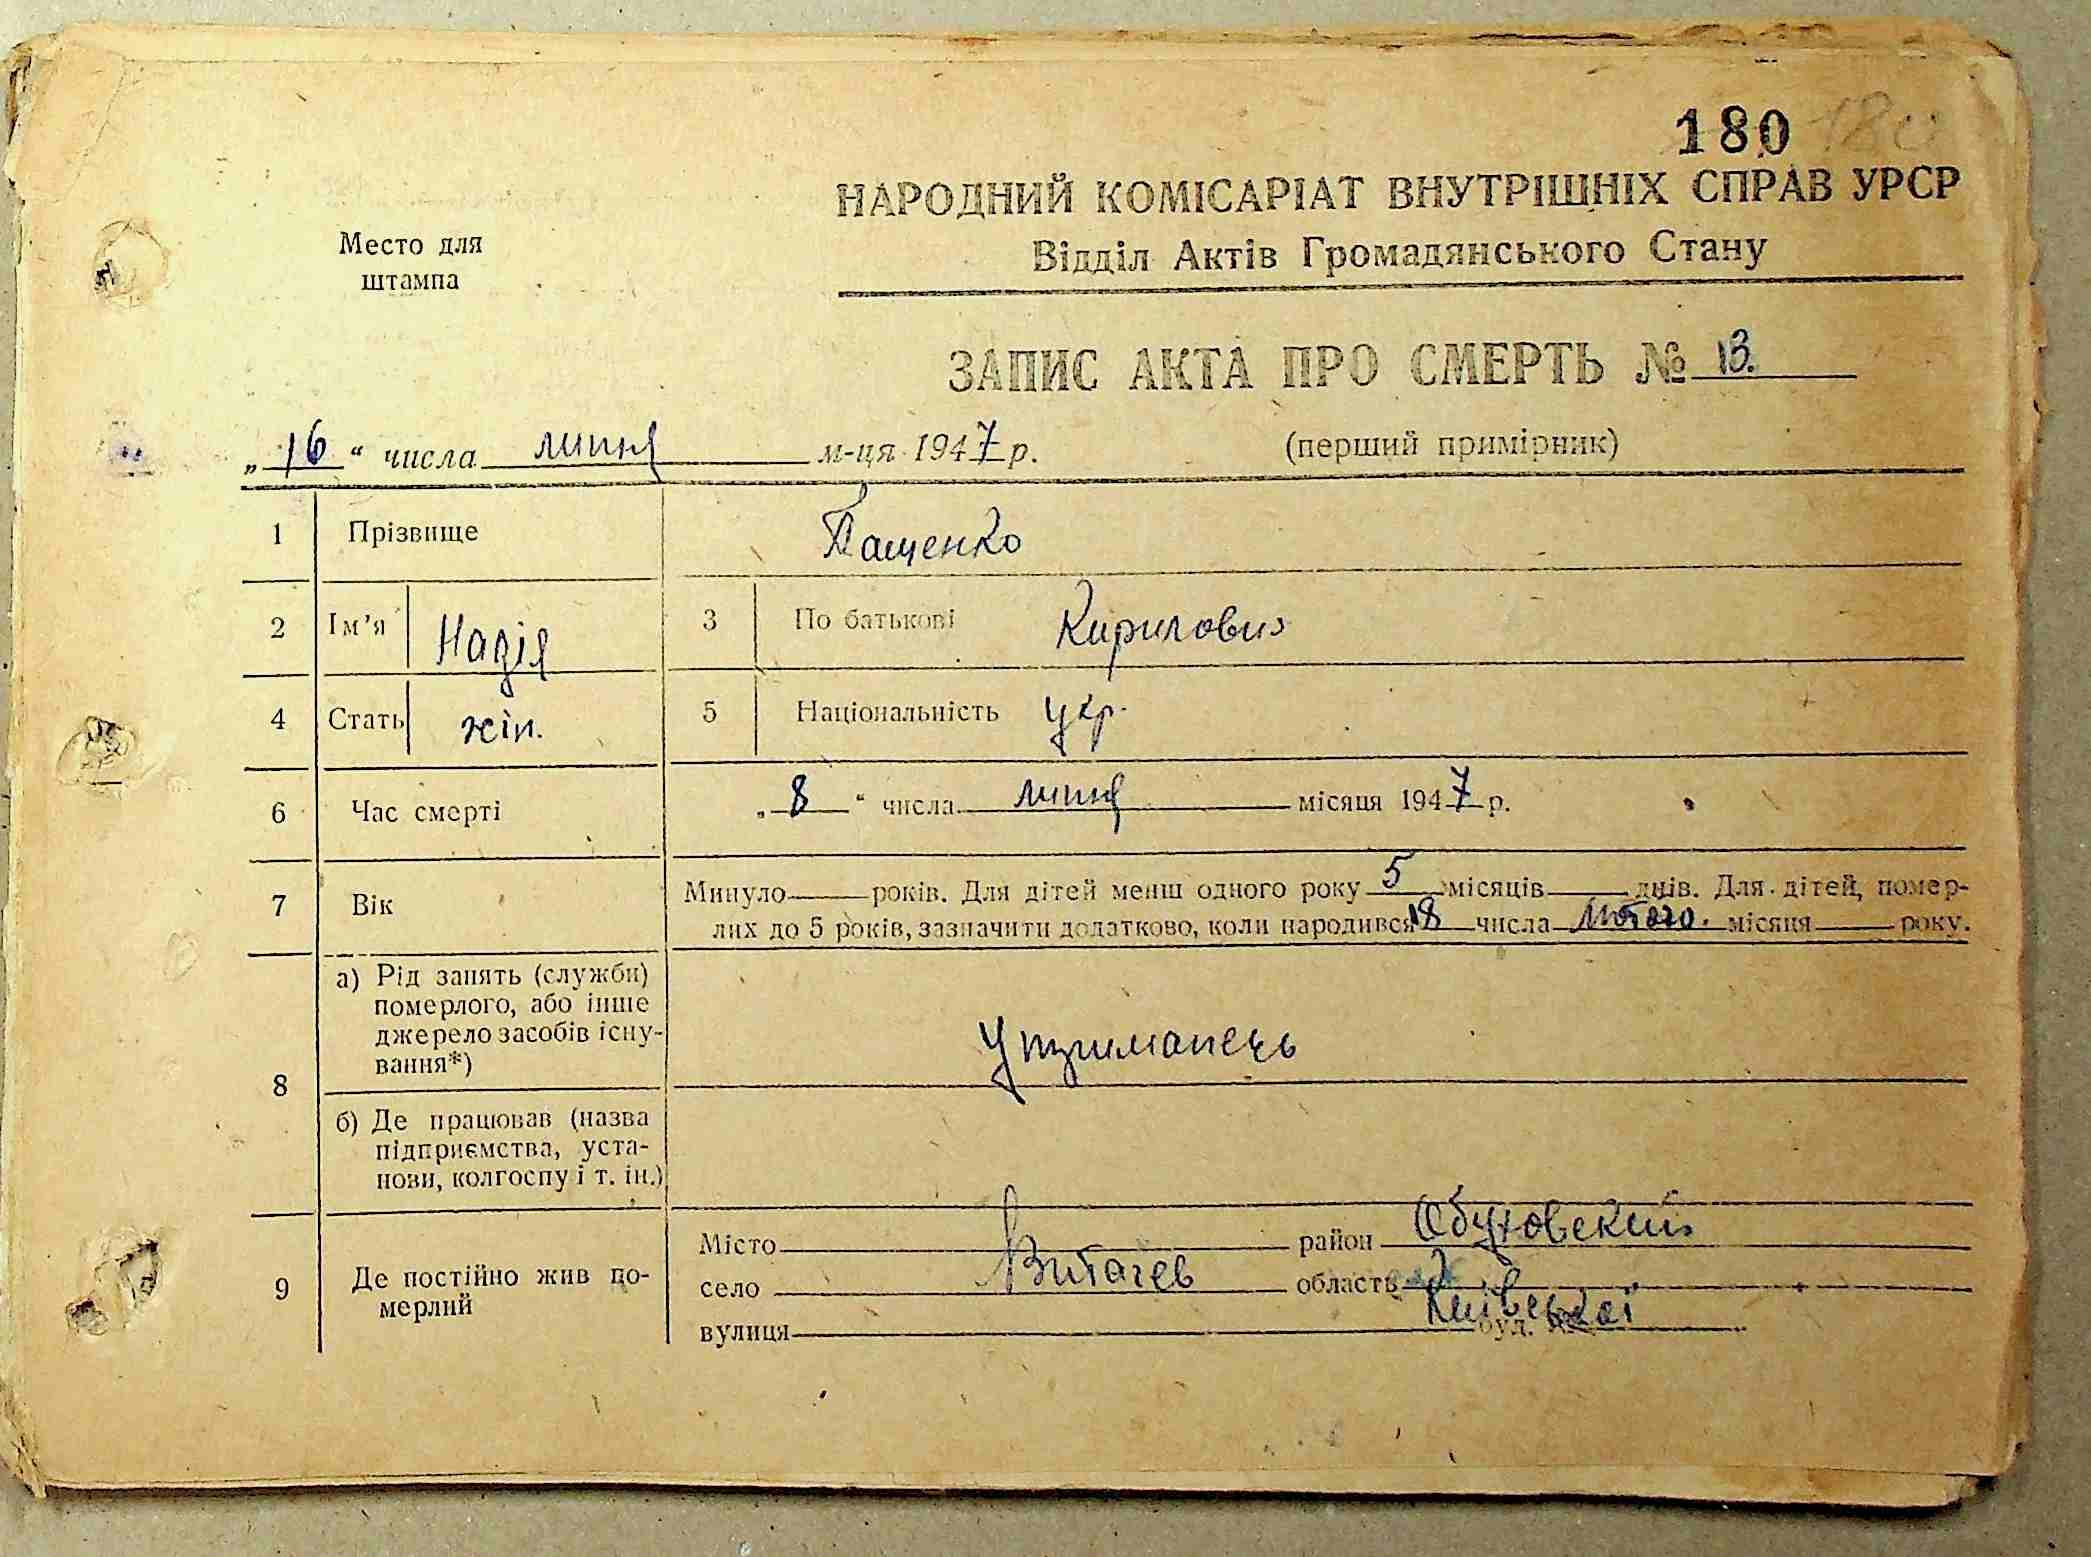 180 180
НАРОДНИЙ КОМІСАРІАТ ВНУТРІШНІХ СПРАВ УРСР
Место для
штампа
Відділ Актів Громадянського Стану
ЗАПИС АКТА ПРО СМЕРТЬ № 13.
„16“ числа липня м-ця 1947 р. (перший примірник)
1 Прізвище Пащенко
2 Ім’я Надія 3 По батькові Кирилович
4 Стать жін. 5 Національність укр.
6 Час смерті „8“ числа липня місяця 1947 р.
7 Вік Минуло — років. Для дітей менш одного року 5 місяців — днів. Для дітей, помер-
лих до 5 років, зазначити додатково, коли народився 18 числа Лютого. місяця — року.
8 а) Рід занять (служби)
померлого, або інше
джерело засобів існу-
вання*) Утриманець
б) Де працював (назва
підприємства, уста-
нови, колгоспу і т. ін.)
9 Де постійно жив по-
мерлий
Місто район Обуховский
село Витачев область Київської
вулиця буд. №